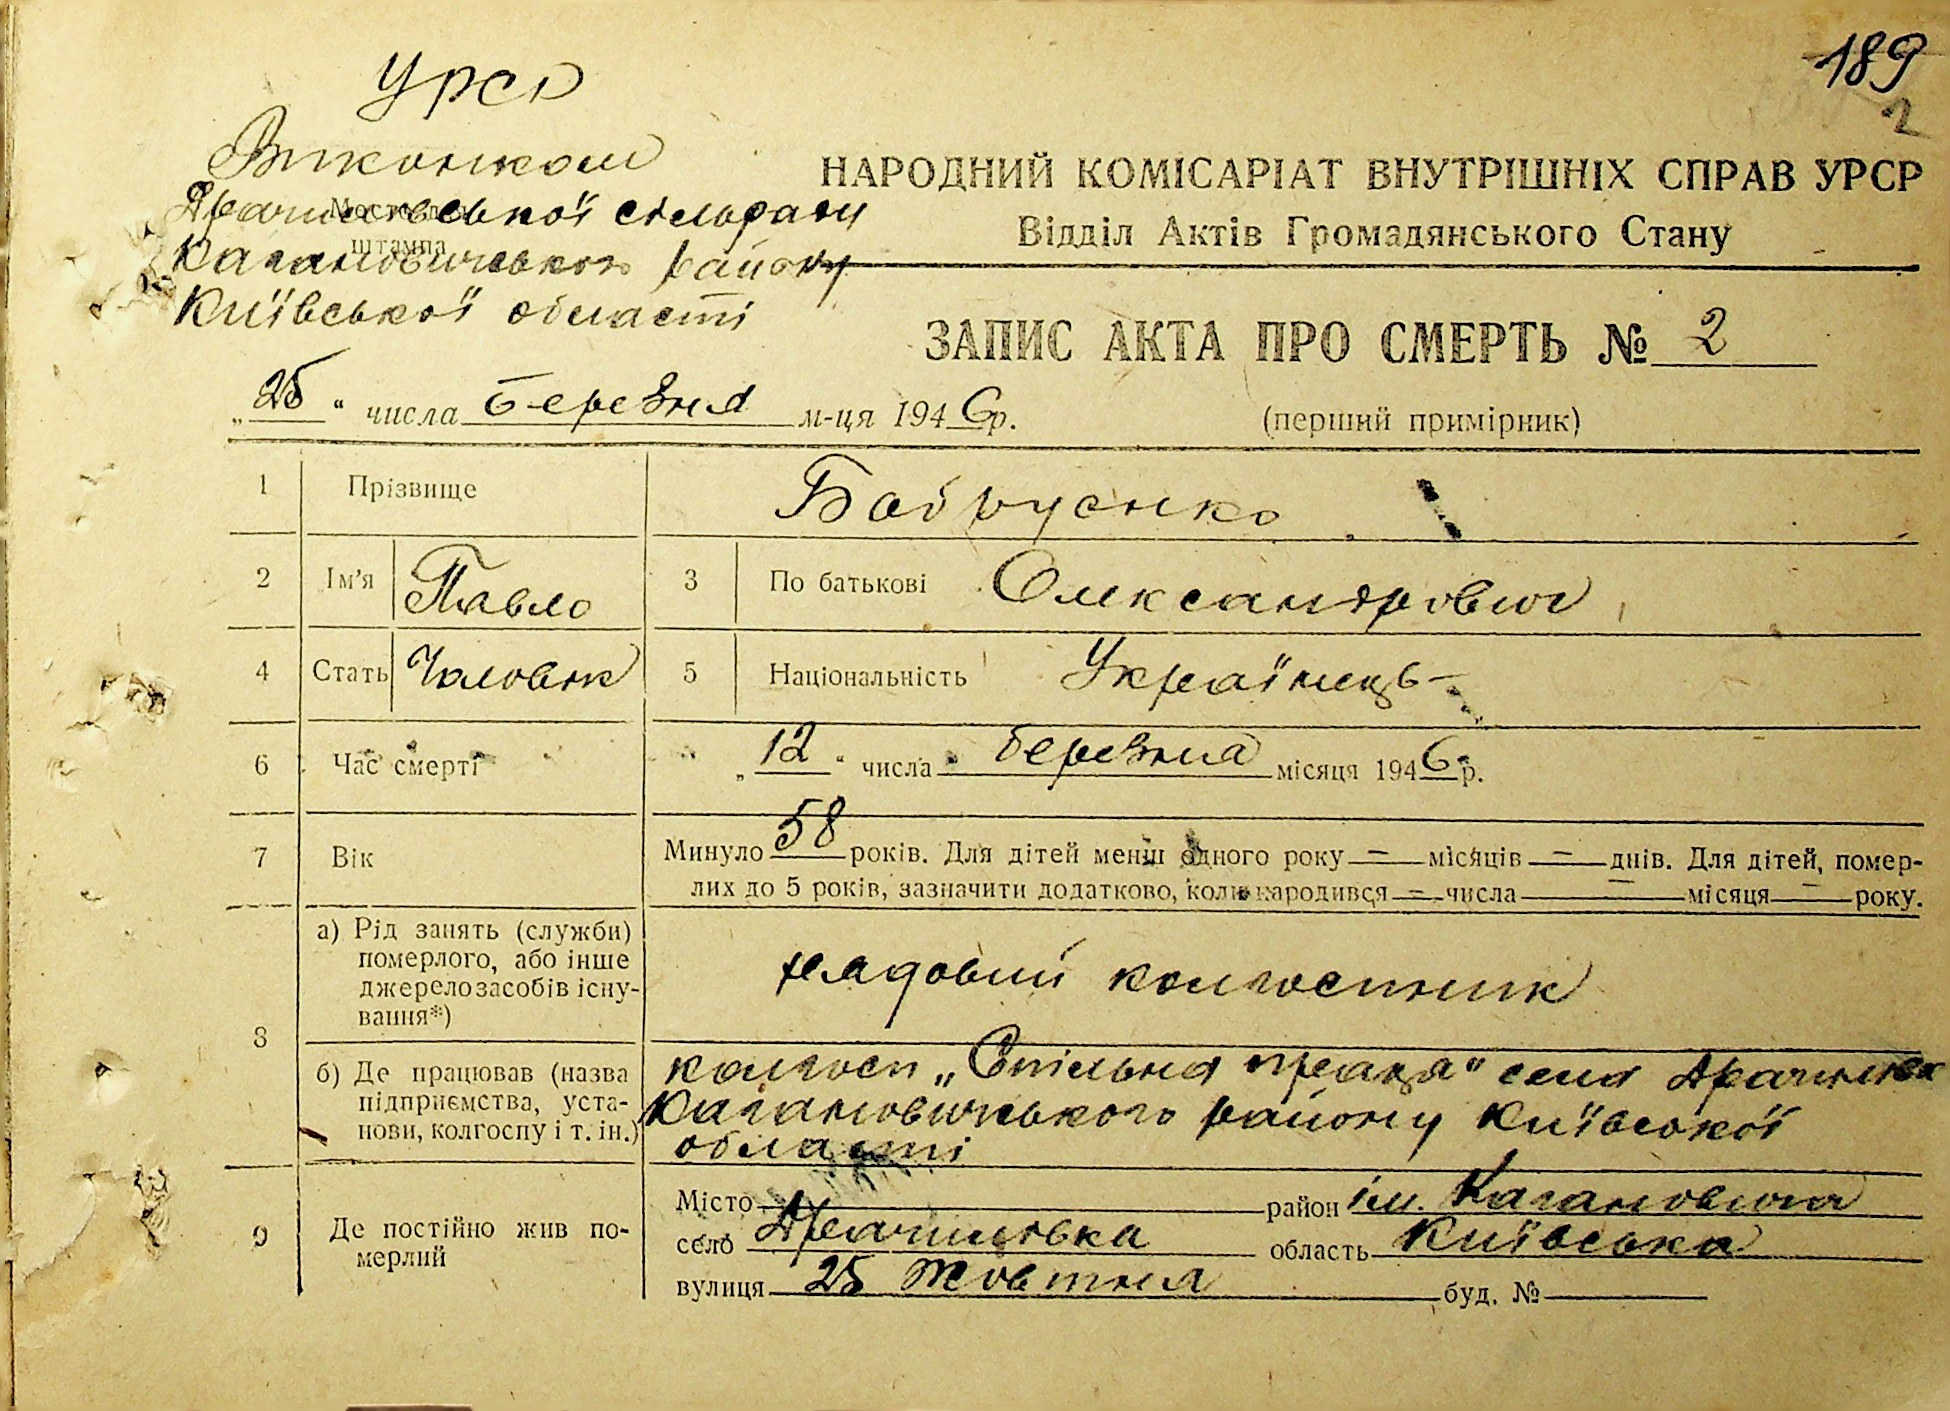 189
2
УРСР
Виконком
Місце для
штампа
сільради
Кагановичського району
Київської області
НАРОДНИЙ КОМІСАРІАТ ВНУТРІШНІХ СПРАВ УРСР
Відділ Актів Громадянського Стану
ЗАПИС АКТА ПРО СМЕРТЬ № 2
„25“ числа березня м-ця 1946р.
(перший примірник)
1 Прізвище Бобрусенко
2 Ім'я Павло 3 По батькові Олександрович
4 Стать Чоловік 5 Національність Українець
6 Час смерті „12“ числа березня місяця 1946р.
7 Вік Минуло 58 років. Для дітей менш одного року — місяців — днів. Для дітей, помер-
лих до 5 років, зазначити додатково, коли народився — числа — місяця — року.
8 а) Рід занять (служби)
померлого, або інше
джерело засобів існу-
вання*)
рядовий колгоспник
б) Де працював (назва
підприємства, уста-
нови, колгоспу і т. ін.)
колгосп „Спільна праця" села
Кагановичського району Київської
області
9 Де постійно жив по-
мерлий
Місто район ім. Кагановича
село область Київська
вулиця 25 Жовтня буд. №